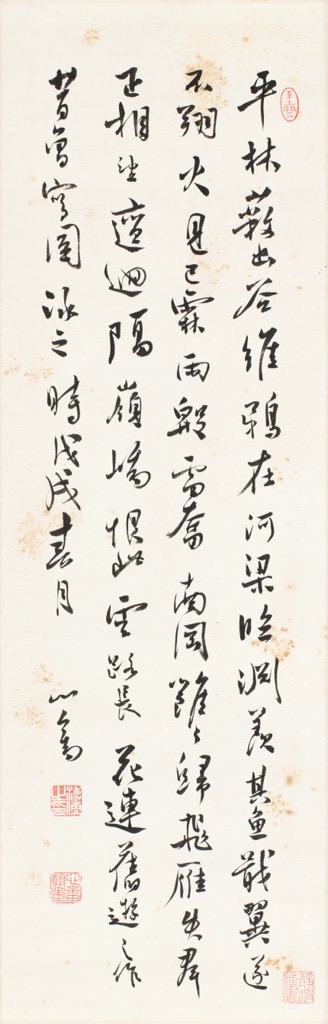 平林蔽幽谷維鵜在河梁臨淵羨其魚戢翼遂
不翔火見已霖雨殷雷奮南岡雝雝歸飛雁失群
正相望邅迴隔嶺嶠恨此雲路長 花蓮舊遊之作
昔曾寫圖詠之時戊戌春月 心畬